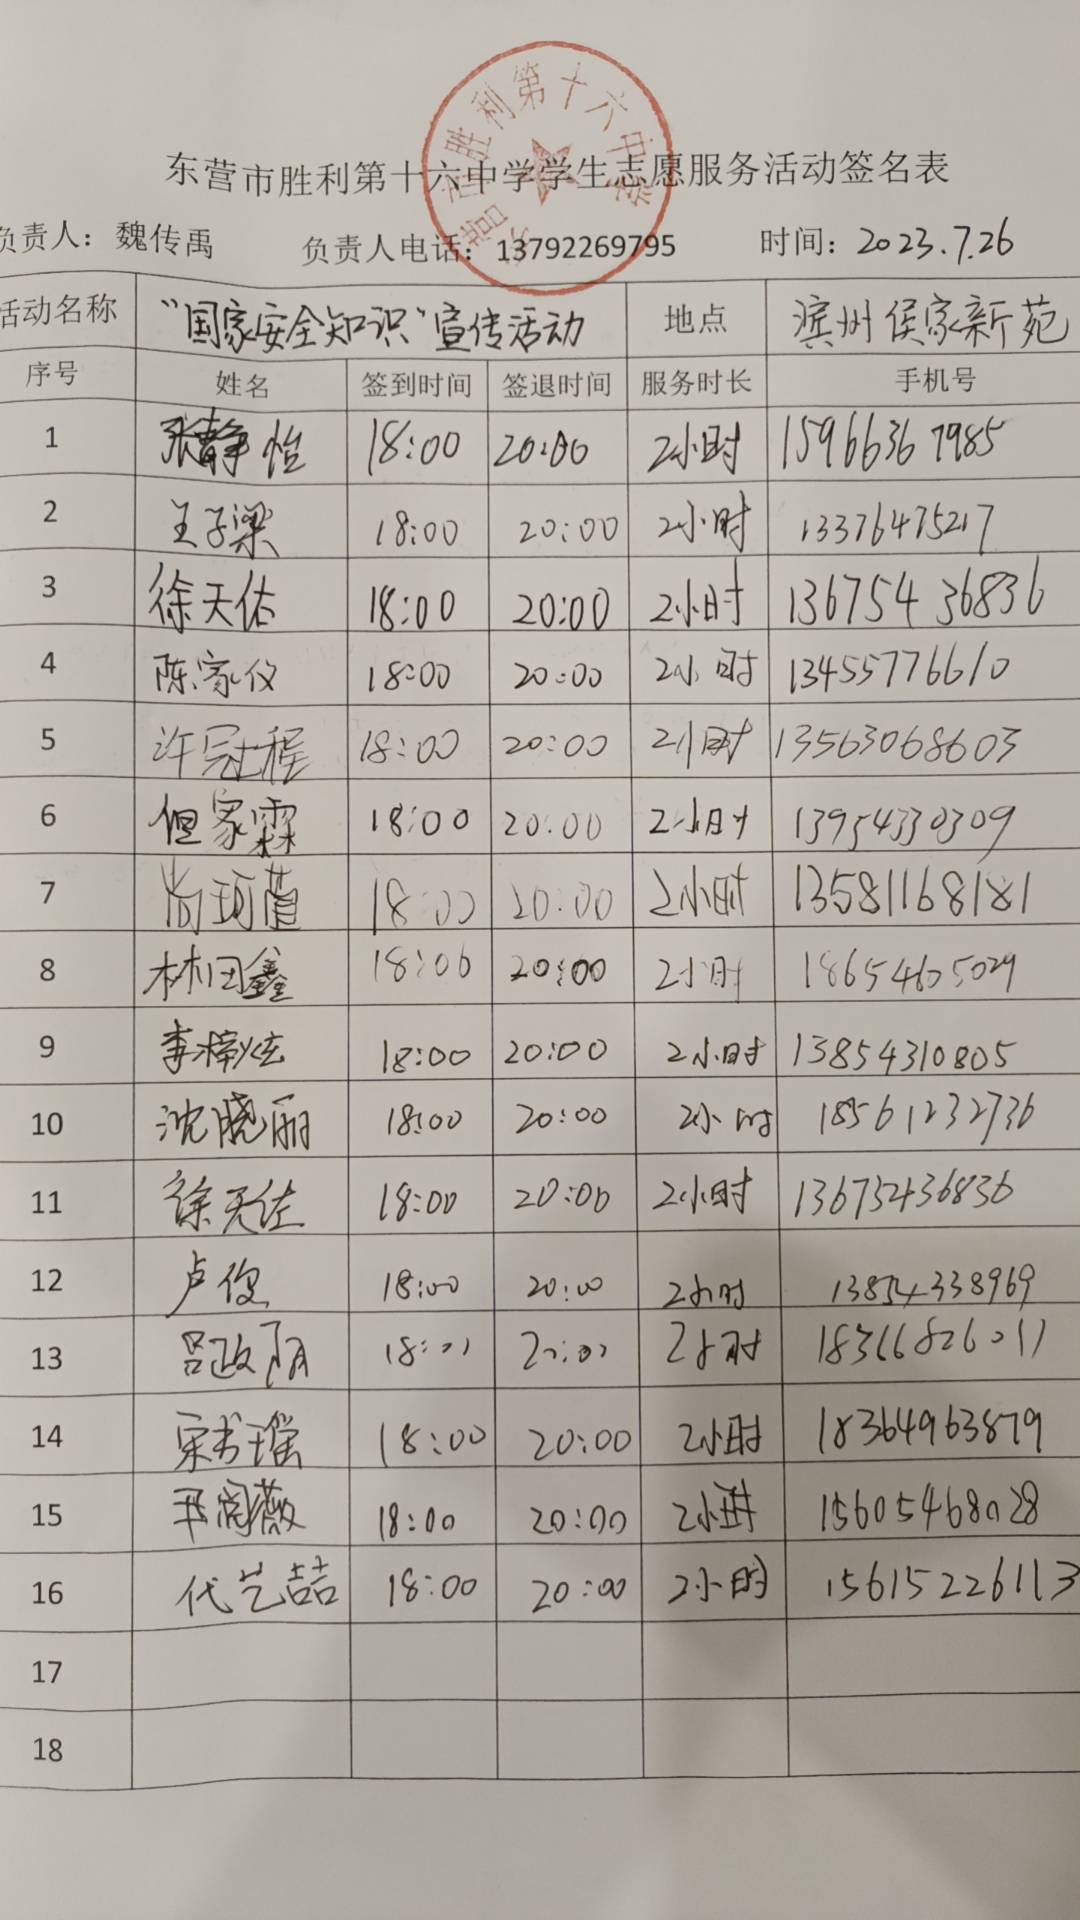 东营市胜利第十六中学
东营市胜利第十六中学学生志愿服务活动签名表
负责人：魏传禹 负责人电话：13792269795 时间：2023.7.26
活动名称 “国家安全知识”宣传活动 地点 滨州侯家新苑
序号 姓名 签到时间 签退时间 服务时长 手机号
1 张静怡 18:00 20:00 2小时 15966367985
2 王子梁 18:00 20:00 2小时 13376475217
3 徐天佑 18:00 20:00 2小时 13675436836
4 陈家仪 18:00 20:00 2小时 13455776610
5 许冠程 18:00 20:00 2小时 13563068603
6 但家霖 18:00 20:00 2小时 13954330309
7 尚珂萱 18:00 20:00 2小时 13581168181
8 林田鑫 18:00 20:00 2小时 18654605029
9 李梓炫 18:00 20:00 2小时 13854310805
10 沈晓丽 18:00 20:00 2小时 18561232736
11 徐天佐 18:00 20:00 2小时 13675436836
12 卢俊 18:00 20:00 2小时 13854338969
13 吕政 18:00 20:00 2小时 18366826011
14 宋书瑶 18:00 20:00 2小时 18364963879
15 薇 18:00 20:00 2小时 15605468028
16 代艺喆 18:00 20:00 2小时 15615226113
17
18